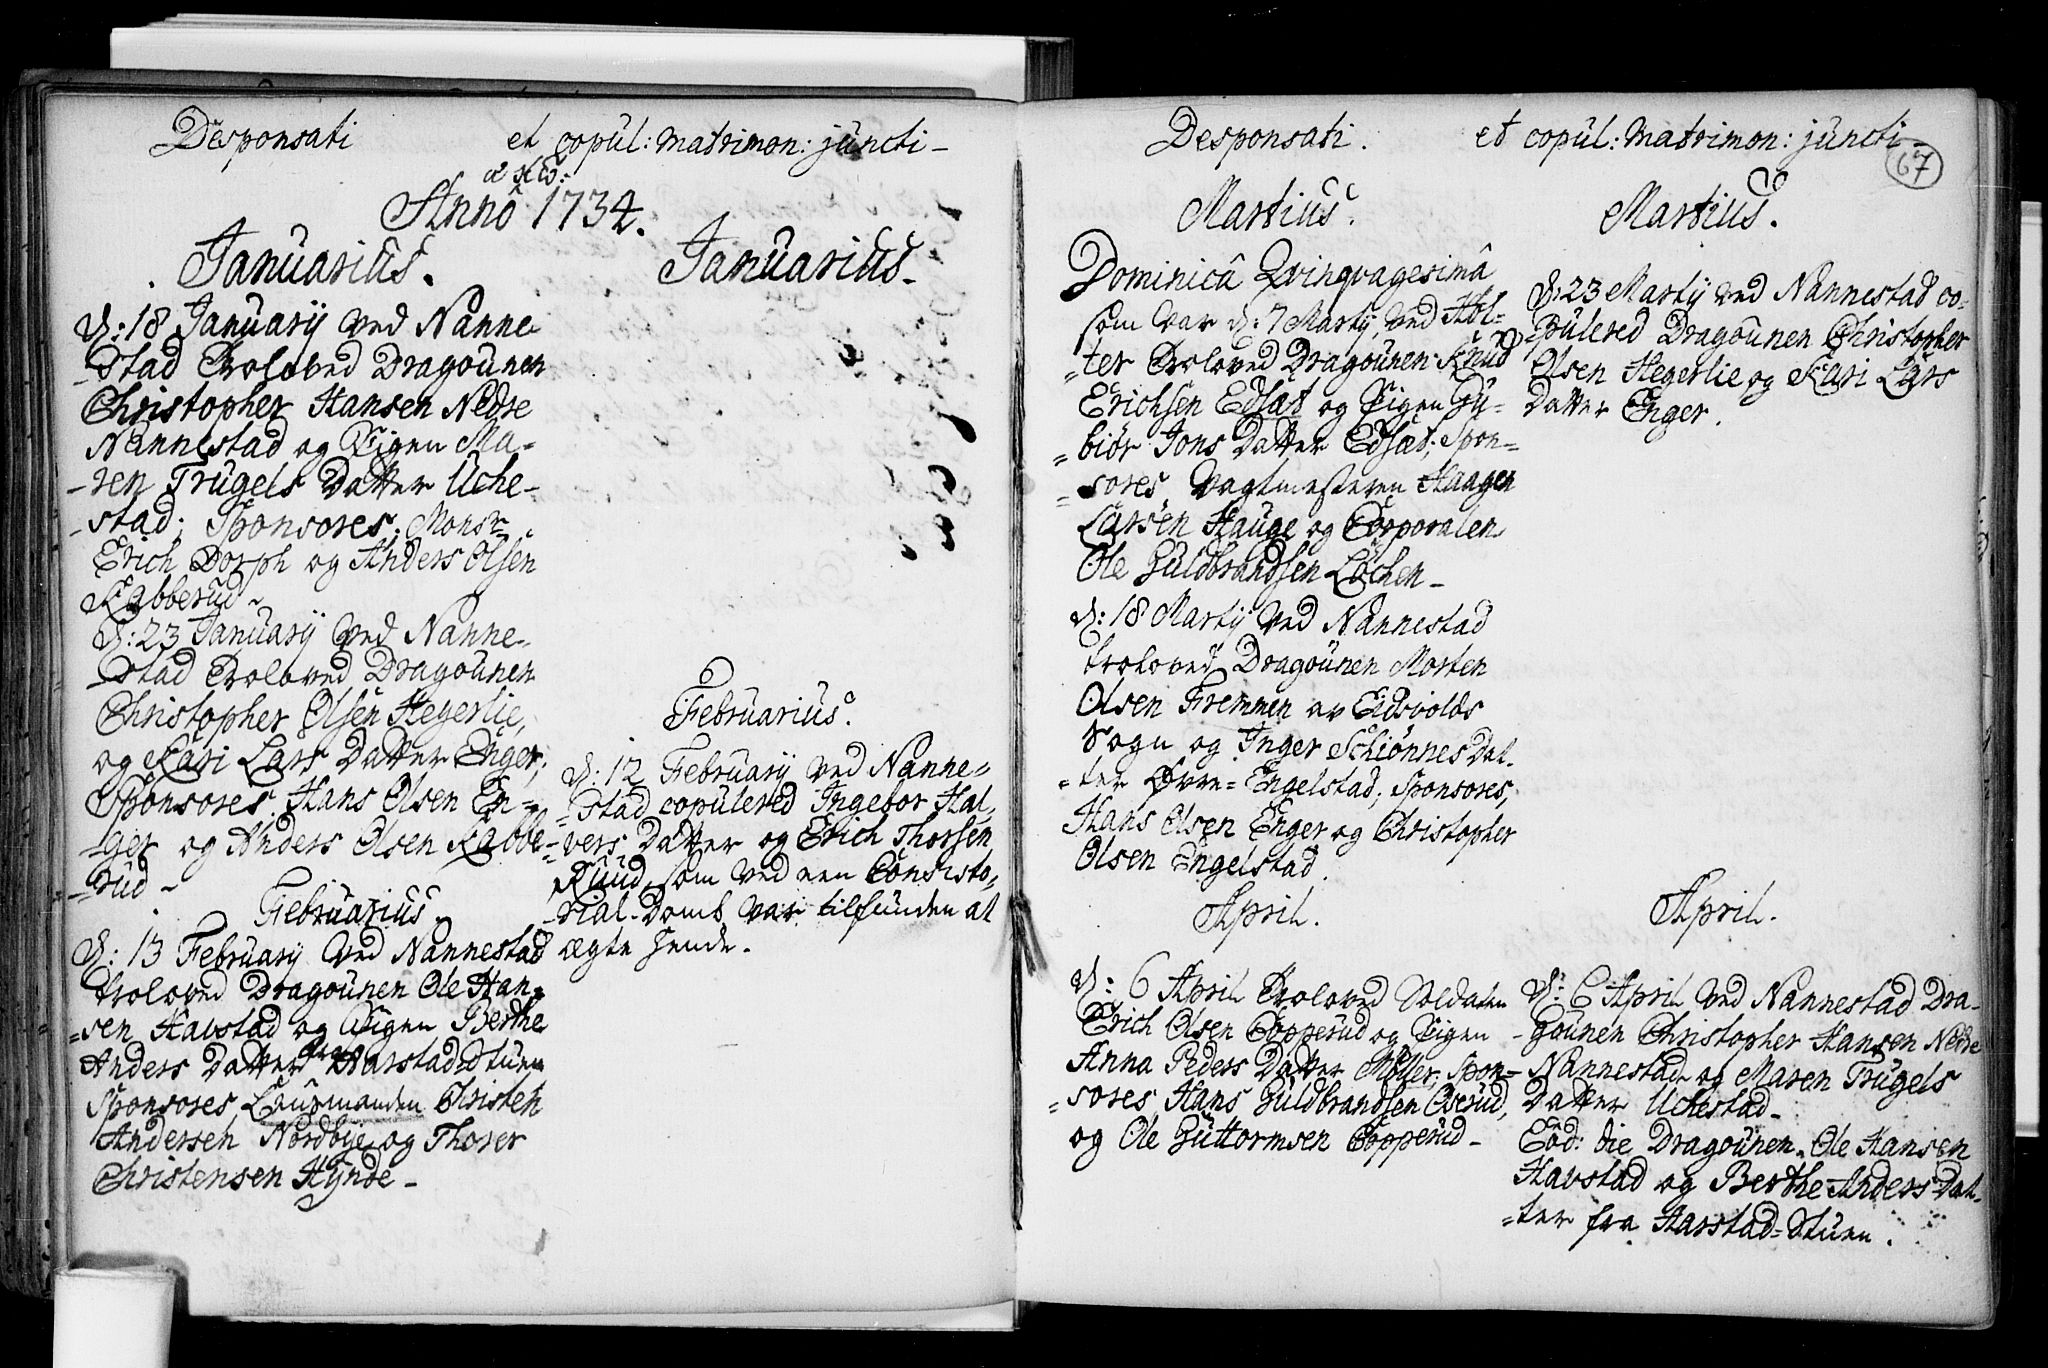 Desponsati et copul: matrimon: juncti -
Anno 1734.
Januarius.
d: 18 Januarÿ ved Nanne-
-stad Troloved Dragounen
Christopher Hansen Nedre
Nannestad og Pigen Ma-
-ren Trugels Datter Uche-
-stad; Sponsores. Monsr.
Erich Dorph og Anders Olsen
Kabberud ~
d: 23 Januarÿ ved Nanne-
-stad Troloved Dragounen
Christopher Olsen Hegerlie,
og Kari Lars Datter Enger;
Sponsores. Hans Olsen En-
-ger og Anders Olsen Kabbe-
-rud ~
Februarius.
d: 13 Februarÿ ved Nannestad
troloved Dragounen Ole Han-
=sen Havstad og Pigen Berthe
Anders Datter fra Harstad=Stuen
Sponsores, Laurmanden Christen
Andersen Nordbye og Thorer
Christensen Hÿnde -
Januarius.
Februarius.
d: 12 Februarÿ ved Nanne=
=stad copulered Ingebor Hal,
=vers Datter og Erich Thorsen
Ruud, som ved een Consisto,
-rial-Domb var tilfunden at
ægte hende.
Desponsati. et copul: matrimon: juncti -
67
Martius.
Dominicâ Qvinqvagesimâ
som var d: 7 Martÿ, ved Hol-
=ter Troloved Dragounen Knud
Erichsen Edsæt og Pigen Gu-
=biør Jons Datter Edsæt; Spon-
=sores, Vagtmesteren Haagen
Larsen Hauge og Corporalen
Ole Guldbrandsen Løchen -
d: 18 Martÿ ved Nannestad
troloved Dragounen Morten
Olsen Fremmen av Eidsvolds
Sogn og Inger Schiønnes Dat-
=ter Øvre=Engelstad; Sponsores,
Hans Olsen Enger og Christopher
Olsen Engelstad.
April.
d: 6 April Troloved Soldaten
Erich Olsen Copperud og Pigen
Anna Peders Datter Møller; Spon-
=sores, Hans Guldbrandsen Oserud,
og Ole Guttormsen Copperud -
Martius.
d: 23 Martÿ ved Nannestad co-
=pulered Dragounen Christopher
Olsen Hegerlie og Kari Lars
Datter Enger.
April.
d: 6 April ved Nannestad Dra-
-gounen Christopher Hansen Nedre
Nannestad og Maren Trugels
Datter Uchestad -
Eod: die Dragounen Ole Hansen
Havstad og Berthe Anders Dat-
=ter fra Harstad=Stuen.